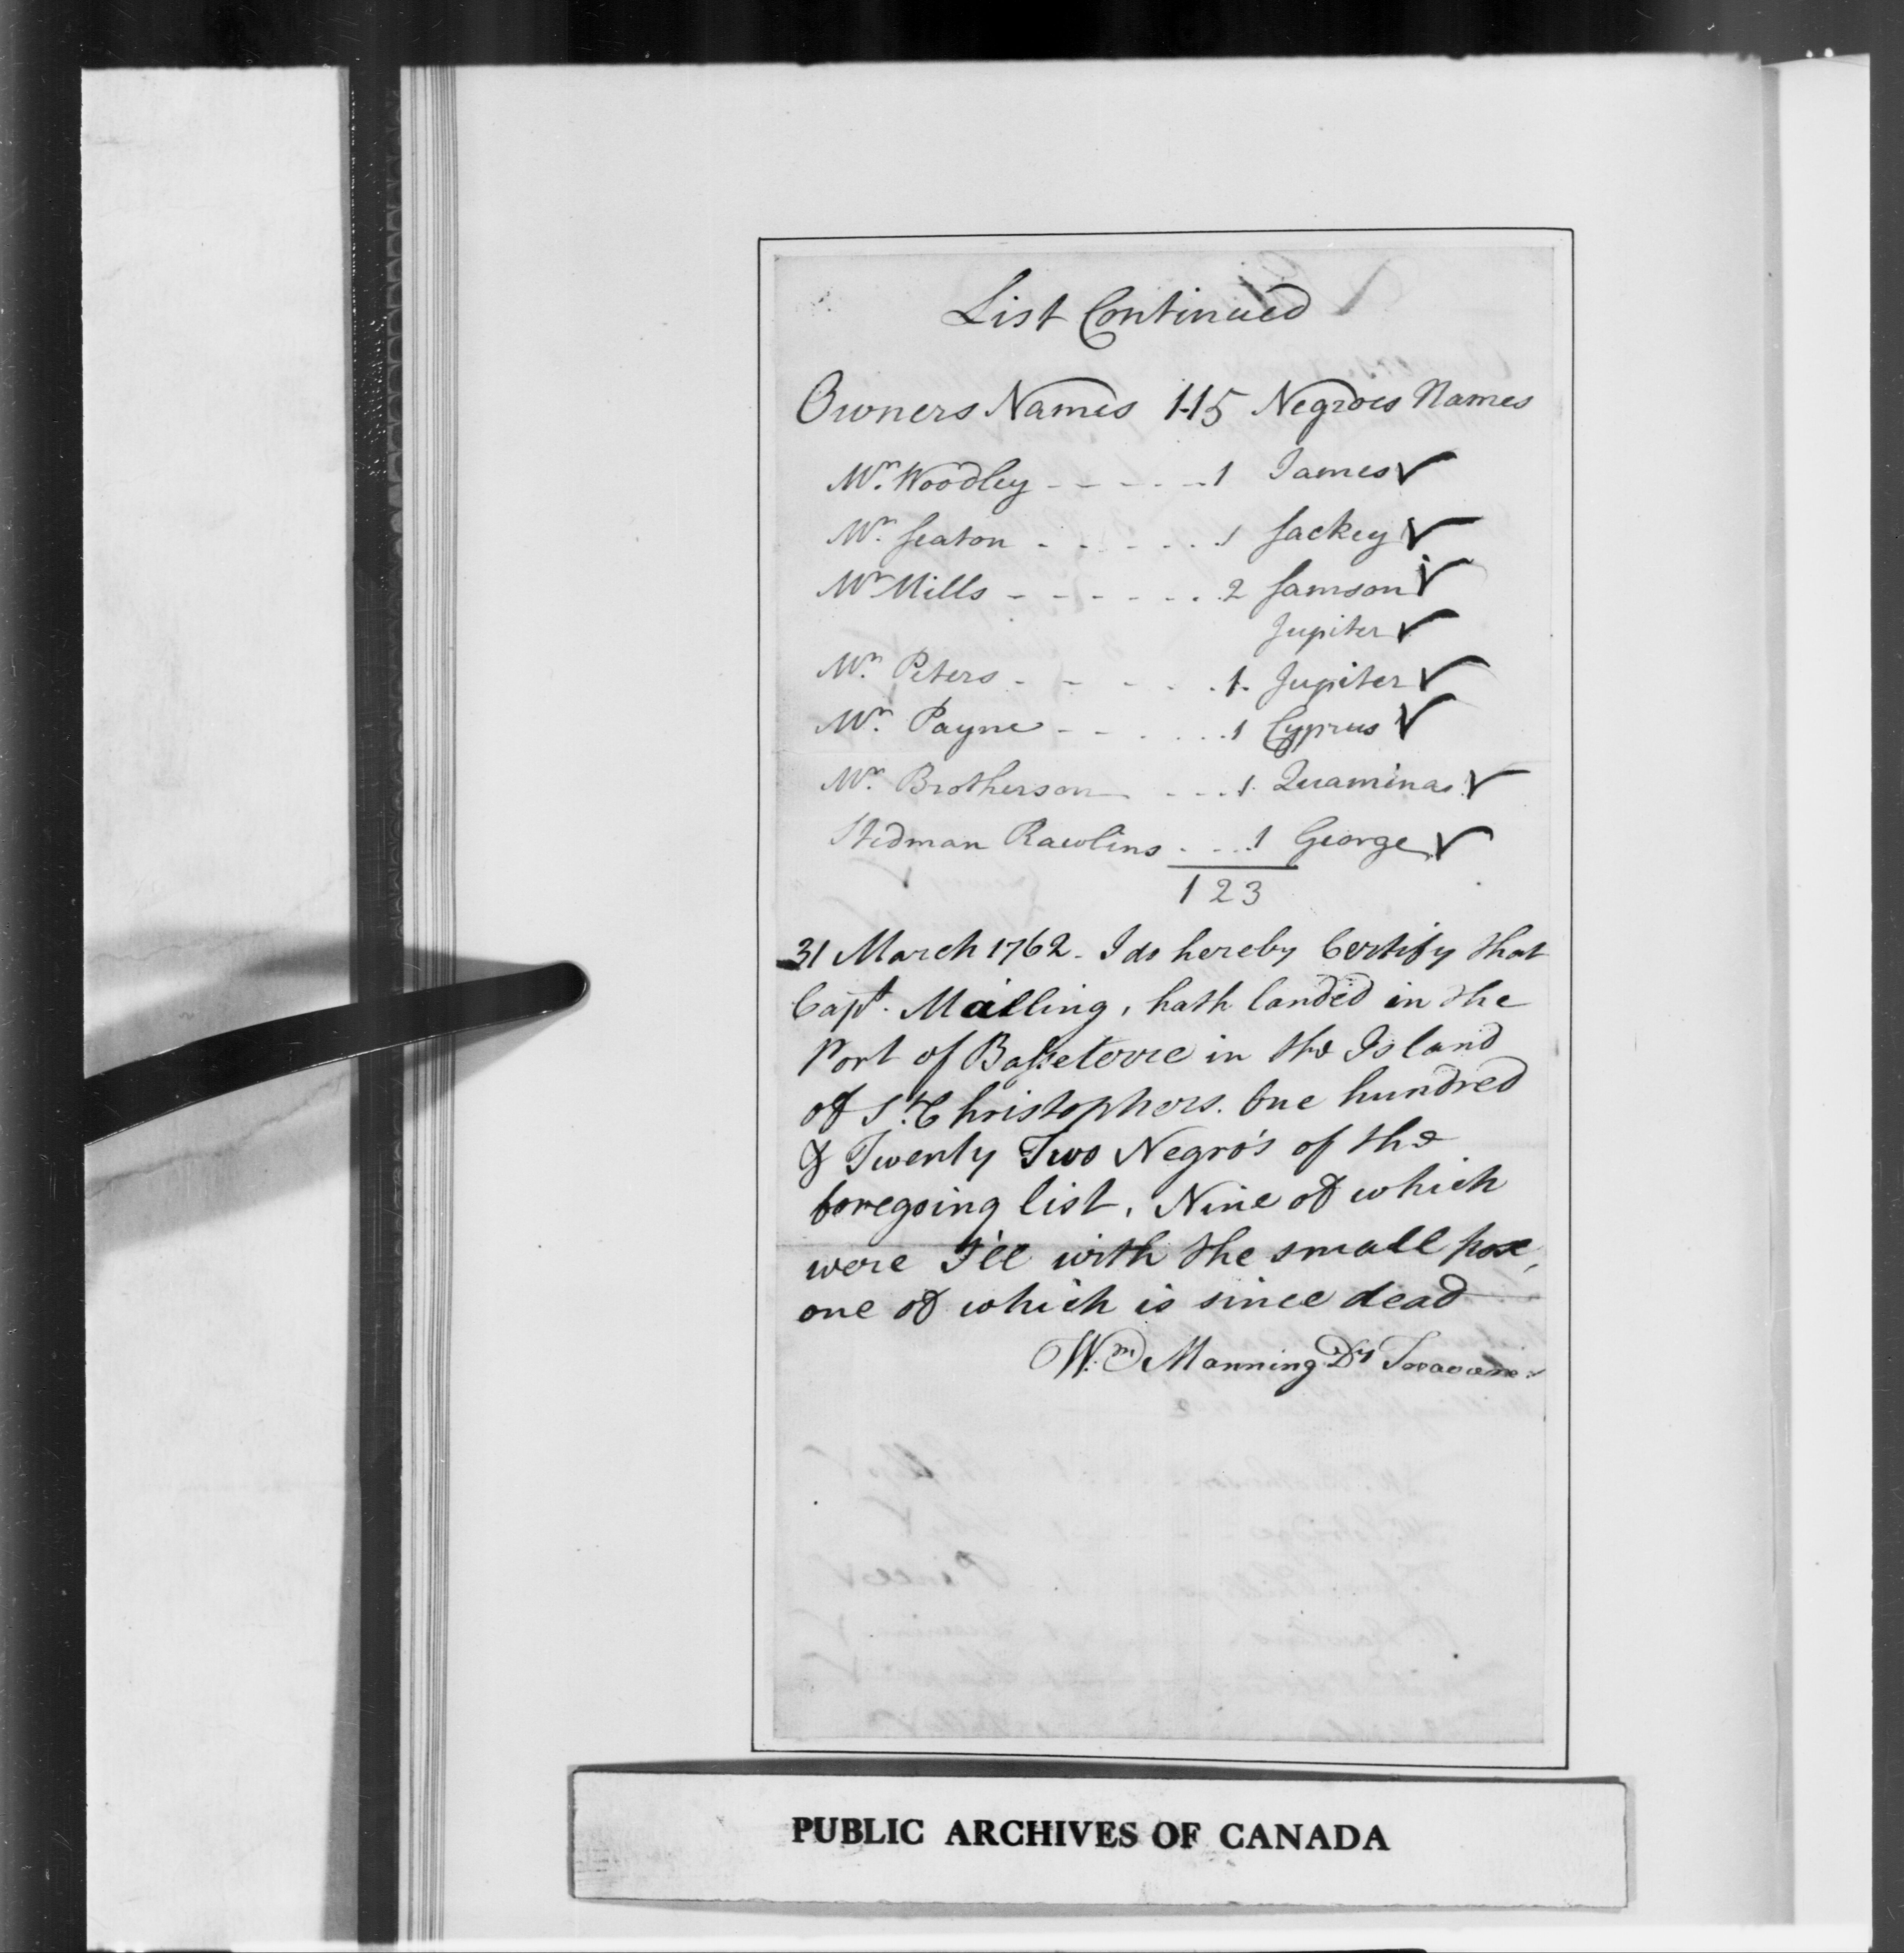 List Continued
Owners Names 115 Negroes Names
Mr. Woodley - - - - - 1 James ✓
Mr. Seaton - - - - - 1 Jackey ✓
Mr Mills - - - - - - 2 Samson ✓
Jupiter ✓
Mr. Peters - - - - - 1. Jupiter ✓
Mr. Payne - - - - - 1 Cyprus ✓
Mr. Brotherson - - - 1. Quaminas ✓
Stedman Rawlins - - - 1 George ✓
123
31 March 1762. I do hereby Certify that
Capt. Mailling, hath landed in the
Port of Basseterre in the Island
of St. Christophers. One hundred
& Twenty Two Negro's of the
foregoing list, Nine of which
were I'll with the small pox,
one of which is since dead
Wm Manning Dy
PUBLIC ARCHIVES OF CANADA